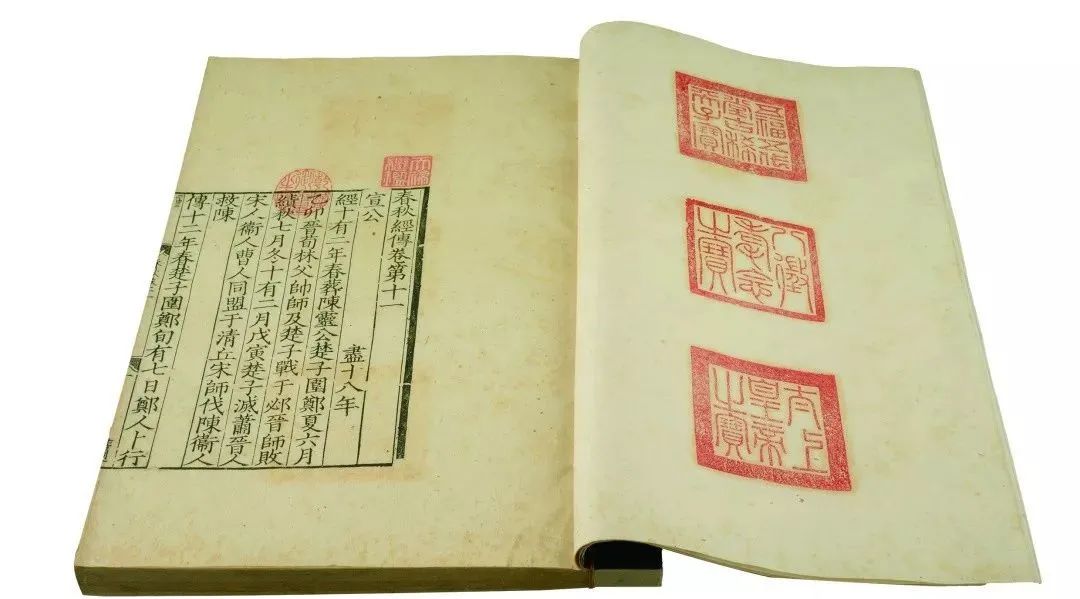 五福五代
堂古稀
天子寶
八徵
耄念
之寶
太上
皇帝
之寶
天祿
繼鑑
春秋經傳卷第十一
宣公 盡十八年
經十有二年春葬陳靈公楚子圍鄭夏六月
乙卯晉荀林父帥師及楚子戰于邲晉師敗
績秋七月冬十有二月戊寅楚子滅蕭晉人
宋人衞人曹人同盟于清丘宋師伐陳衞人
救陳
傳十二年春楚子圍鄭旬有七日鄭人卜行